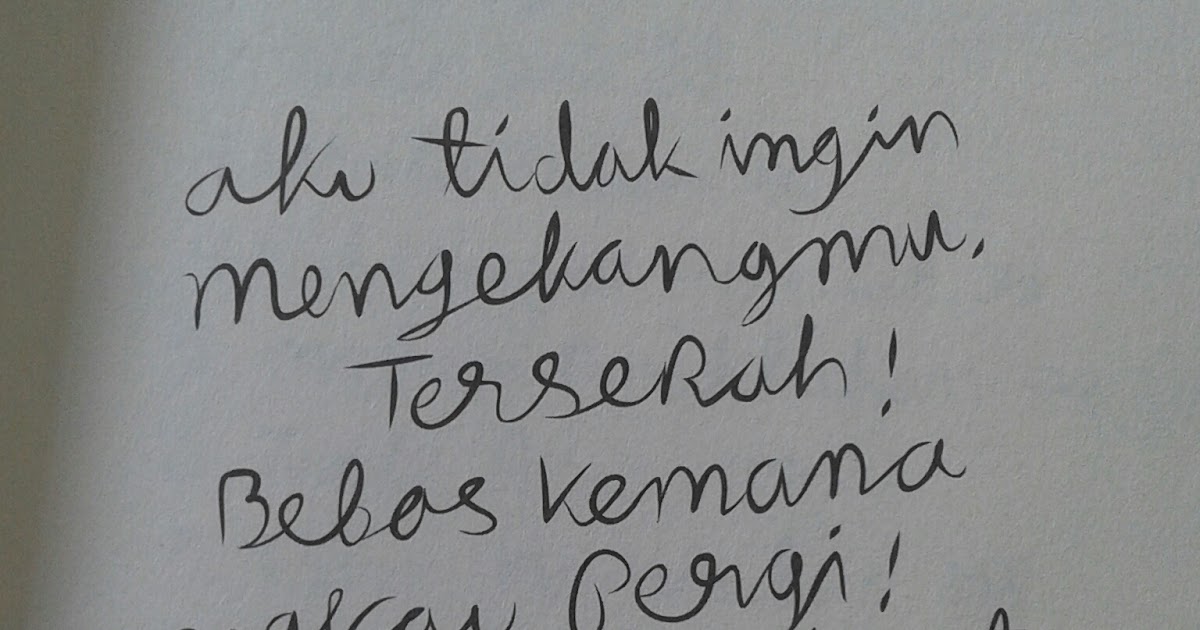 aku tidak ingin
mengekangmu.
Terserah!
Bebas kemana
pergi!